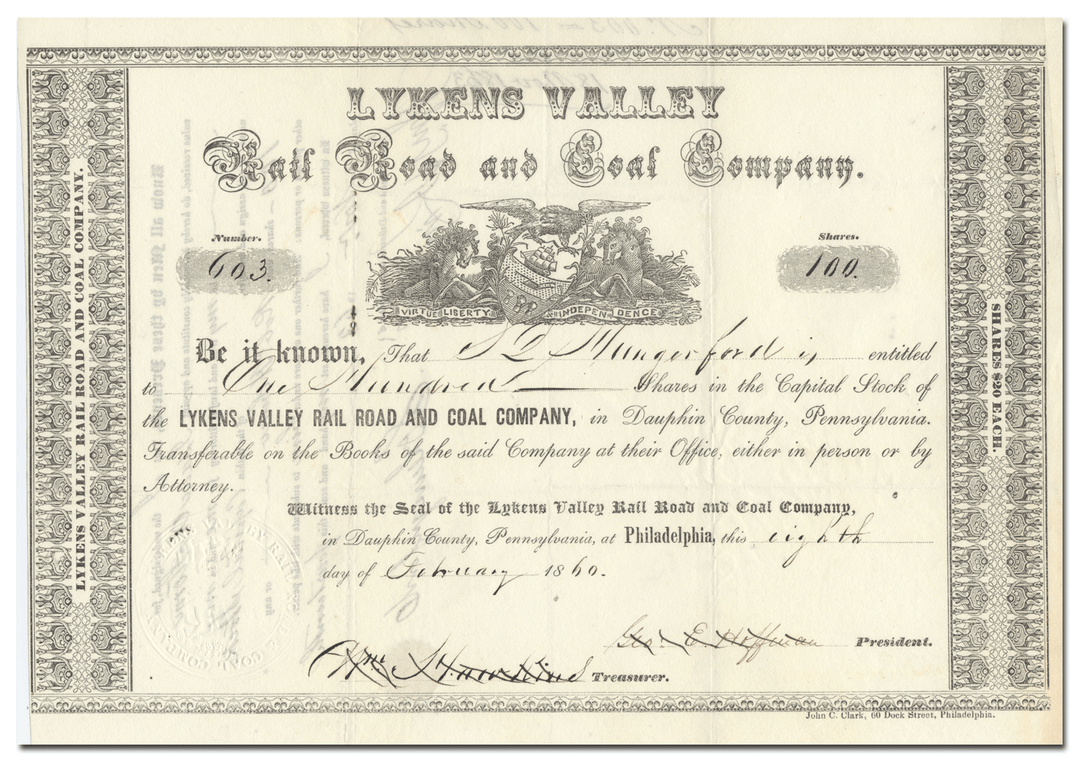 LYKENS VALLEY
Rail Road and Coal Company.
Number.
603.
Shares.
100.
VIRTUE LIBERTY & INDEPENDENCE
Be it known, That S D Hungerford is entitled
to One Hundred Shares in the Capital Stock of
the LYKENS VALLEY RAIL ROAD AND COAL COMPANY, in Dauphin County, Pennsylvania.
Transferable on the Books of the said Company at their Office, either in person or by
Attorney.
Witness the Seal of the Lykens Valley Rail Road and Coal Company,
in Dauphin County, Pennsylvania, at Philadelphia, this eighth
day of February 1860.
Geo. E. Hoffman President.
Wm. Hawkins Treasurer.
LYKENS VALLEY RAIL ROAD AND COAL COMPANY.
SHARES $20 EACH.
John C. Clark, 60 Dock Street, Philadelphia.